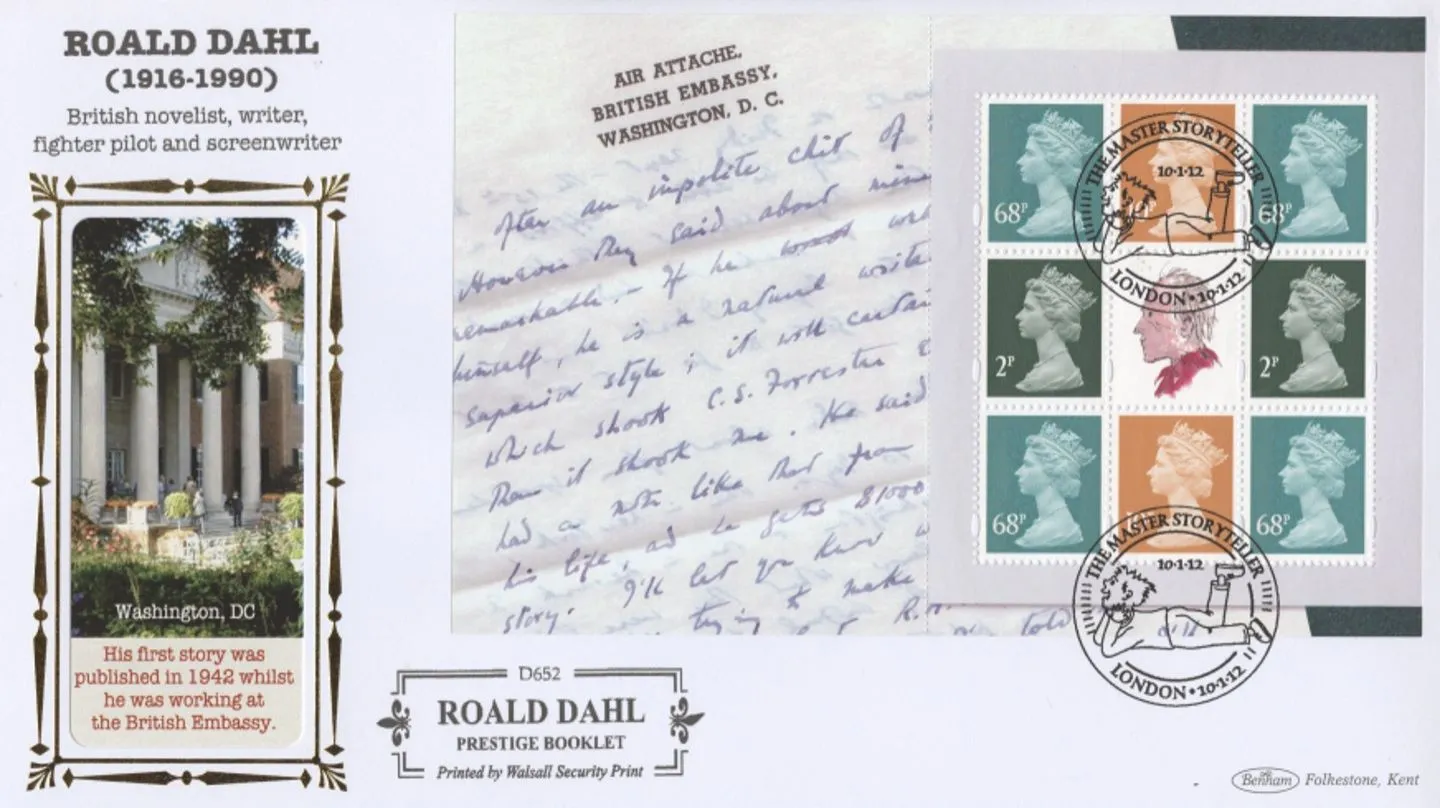 ROALD DAHL
(1916-1990)
British novelist, writer,
fighter pilot and screenwriter
Washington, DC
His first story was
published in 1942 whilst
he was working at
the British Embassy.
AIR ATTACHE,
BRITISH EMBASSY,
WASHINGTON, D. C.
After an impolite chit of
However they said about mine
remarkable. - If he wo
himself, he is a natural write
superior style; it will certai
which shook C.S. Forrester
Than it shook me. He said
had a note like that from
his life, and he gets $1000
story. I'll let you know w
trying to make
R.
told
68P
68P
2P
2P
68P
68P
THE MASTER STORYTELLER
10·1·12
LONDON • 10·1·12
THE MASTER STORYTELLER
10·1·12
LONDON • 10·1·12
D652
ROALD DAHL
PRESTIGE BOOKLET
Printed by Walsall Security Print
Benham Folkestone, Kent